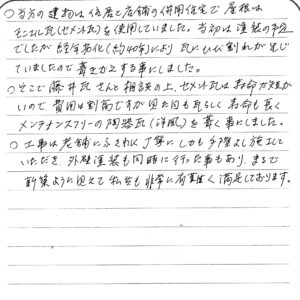 ○当方の建物は住居と店舗の併用住宅で屋根は
モニエル瓦(セメント瓦)を使用していました。当初は塗装の予定
でしたが経年劣化(約40年)により瓦にひび割れが生じ
ていましたので葺きかえする事にしました。
○そこで藤井瓦さんと相談の上、セメント瓦は寿命が短か
いので費用は割高ですが見た目も瓦らしく寿命も長く
メンテナンスフリーの陶器瓦(洋風)を葺く事にしました。
○工事は老舗にふさわしく丁寧にしかも手際よし施工して
いただき、外壁塗装も同時に行った事もあり、まるで
新築ように見えて私共も非常に有難く満足しております。